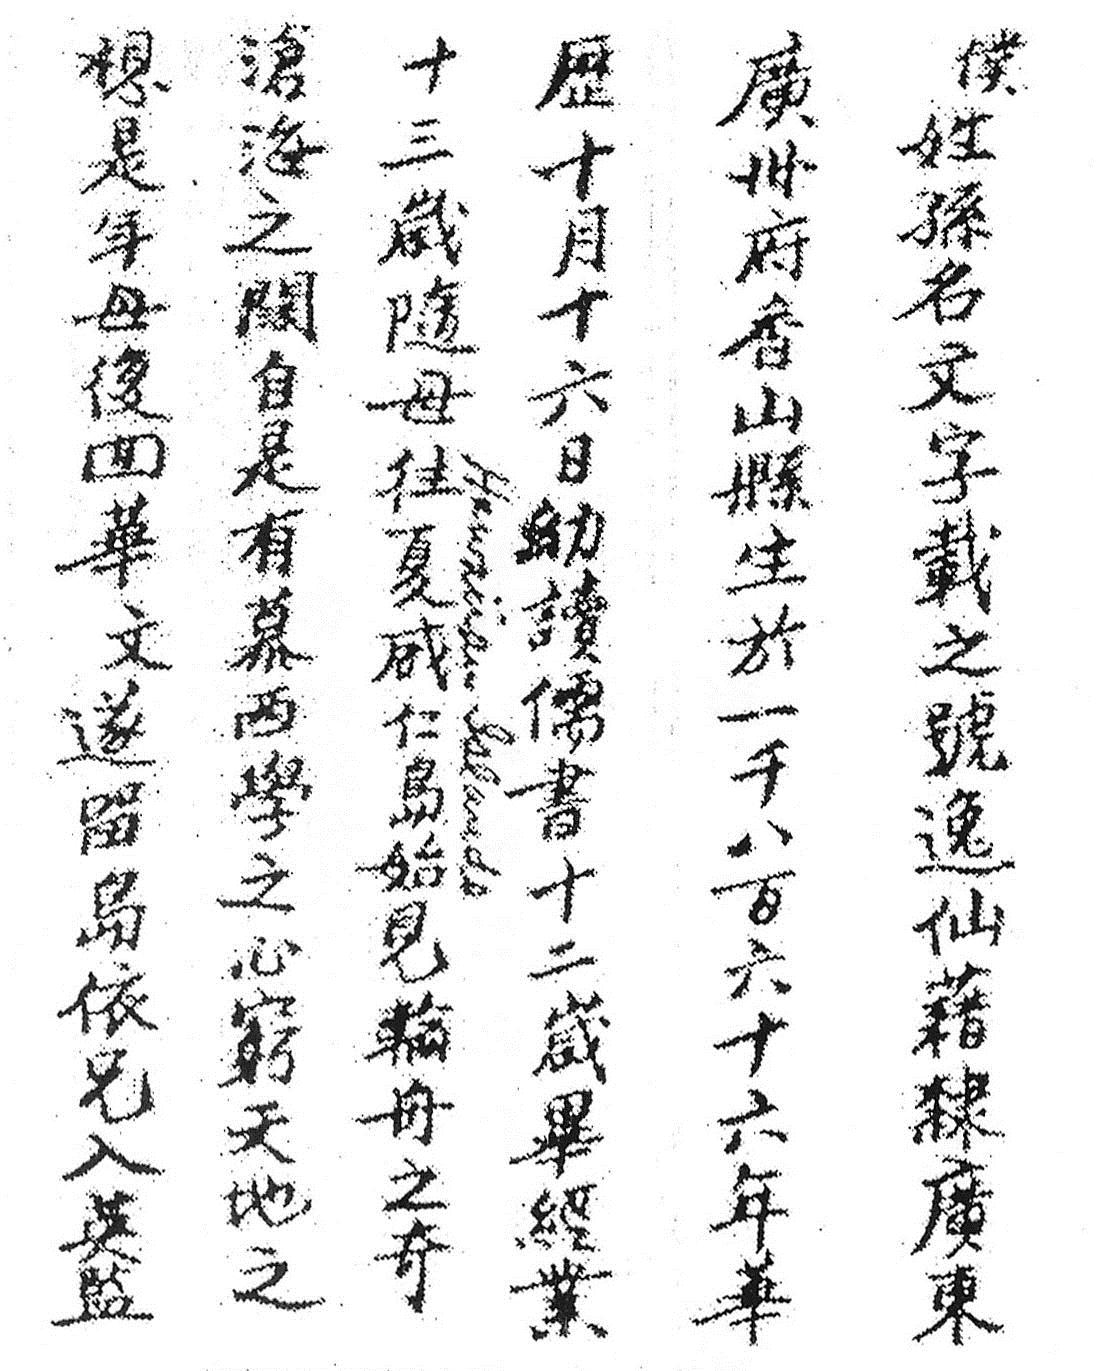 僕姓孫名文字載之號逸仙藉隸廣東
廣州府香山縣生於一千八百六十六年華
歷十月十六日幼讀儒書十二歲畢經業
十三歲隨母往夏威仁島始見輪舟之奇
Hawaiian Islands
滄海之闊自是有慕西學之心窮天地之
想是年母復回華文遂留島依兄入英監